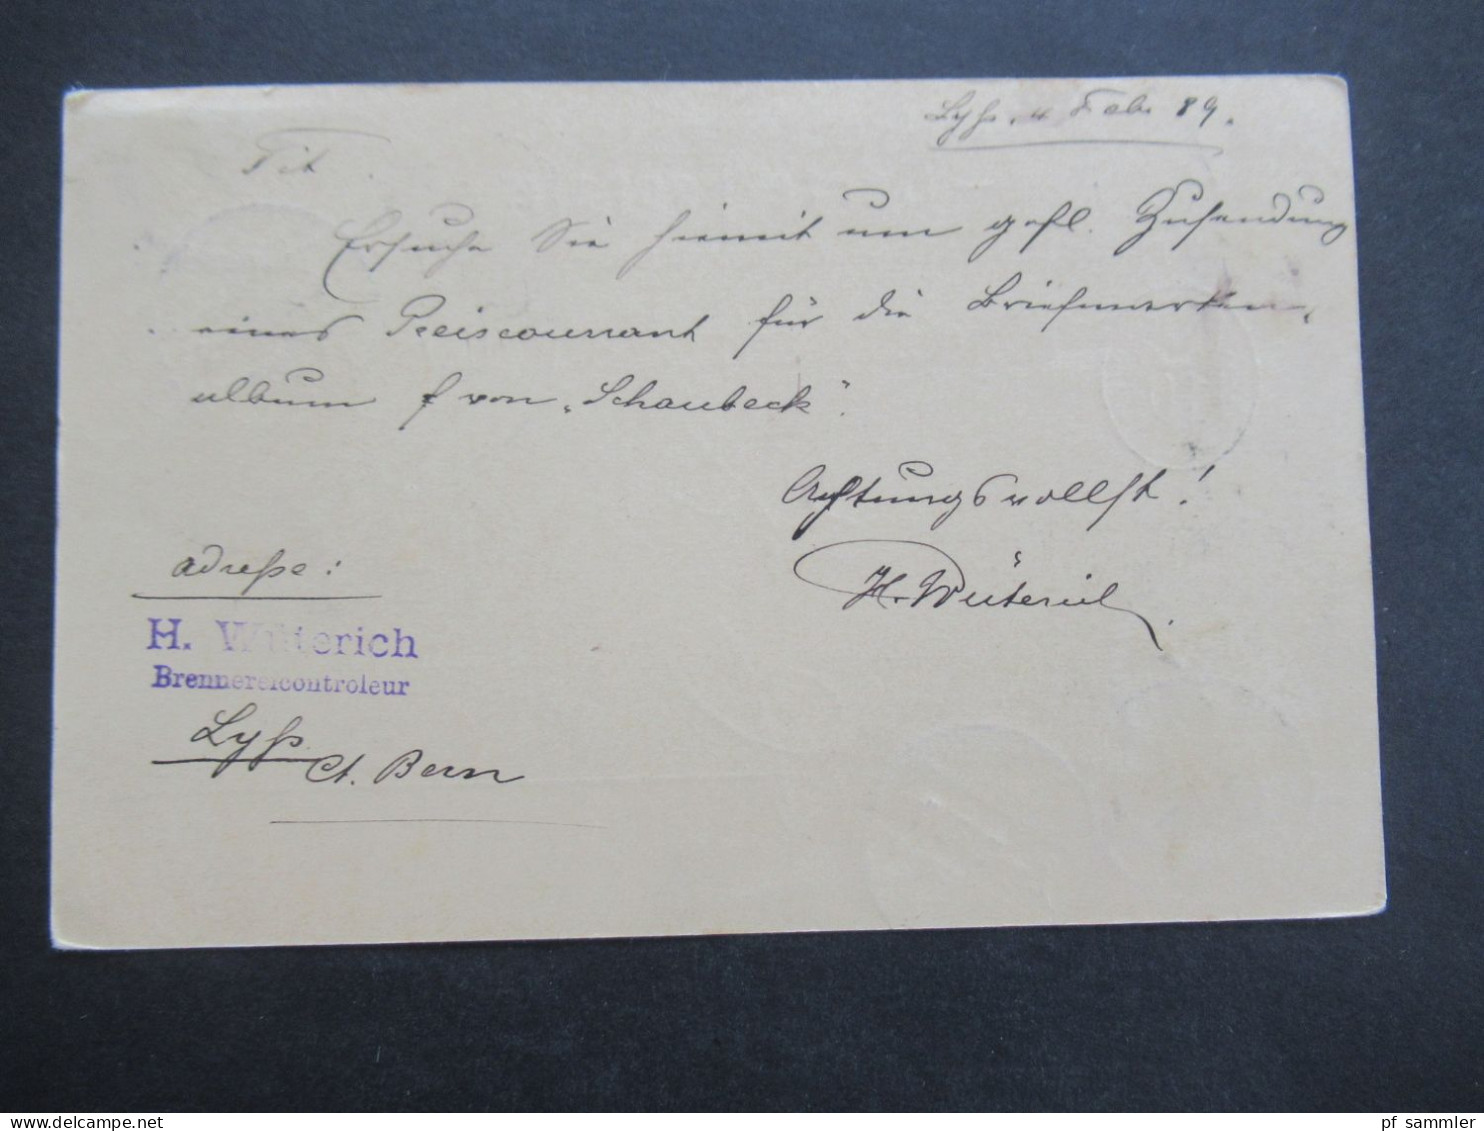 Lyß, 4 Feb. 89.
Tit.
Ersuche Sie hiemit um gefl. Zusendung
eines Preiscourrant für die Briefmarken-
album v von „Schaubeck".
Achtungsvollst!
H. Wüterich
Adreße:
H. Wüterich
Brennereicontroleur
Lyß
Ct. Bern
pf_sammler